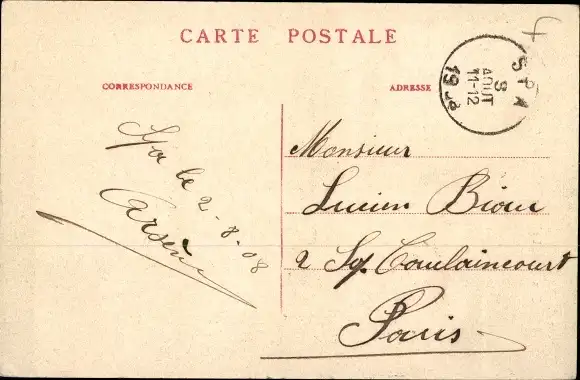 CARTE POSTALE
CORRESPONDANCE
ADRESSE
SPA
3
AOUT
11-12
1908
Spa le 2-8-08
Arsène
Monsieur
Lucien Bioux
2 Sq. Caulaincourt
Paris